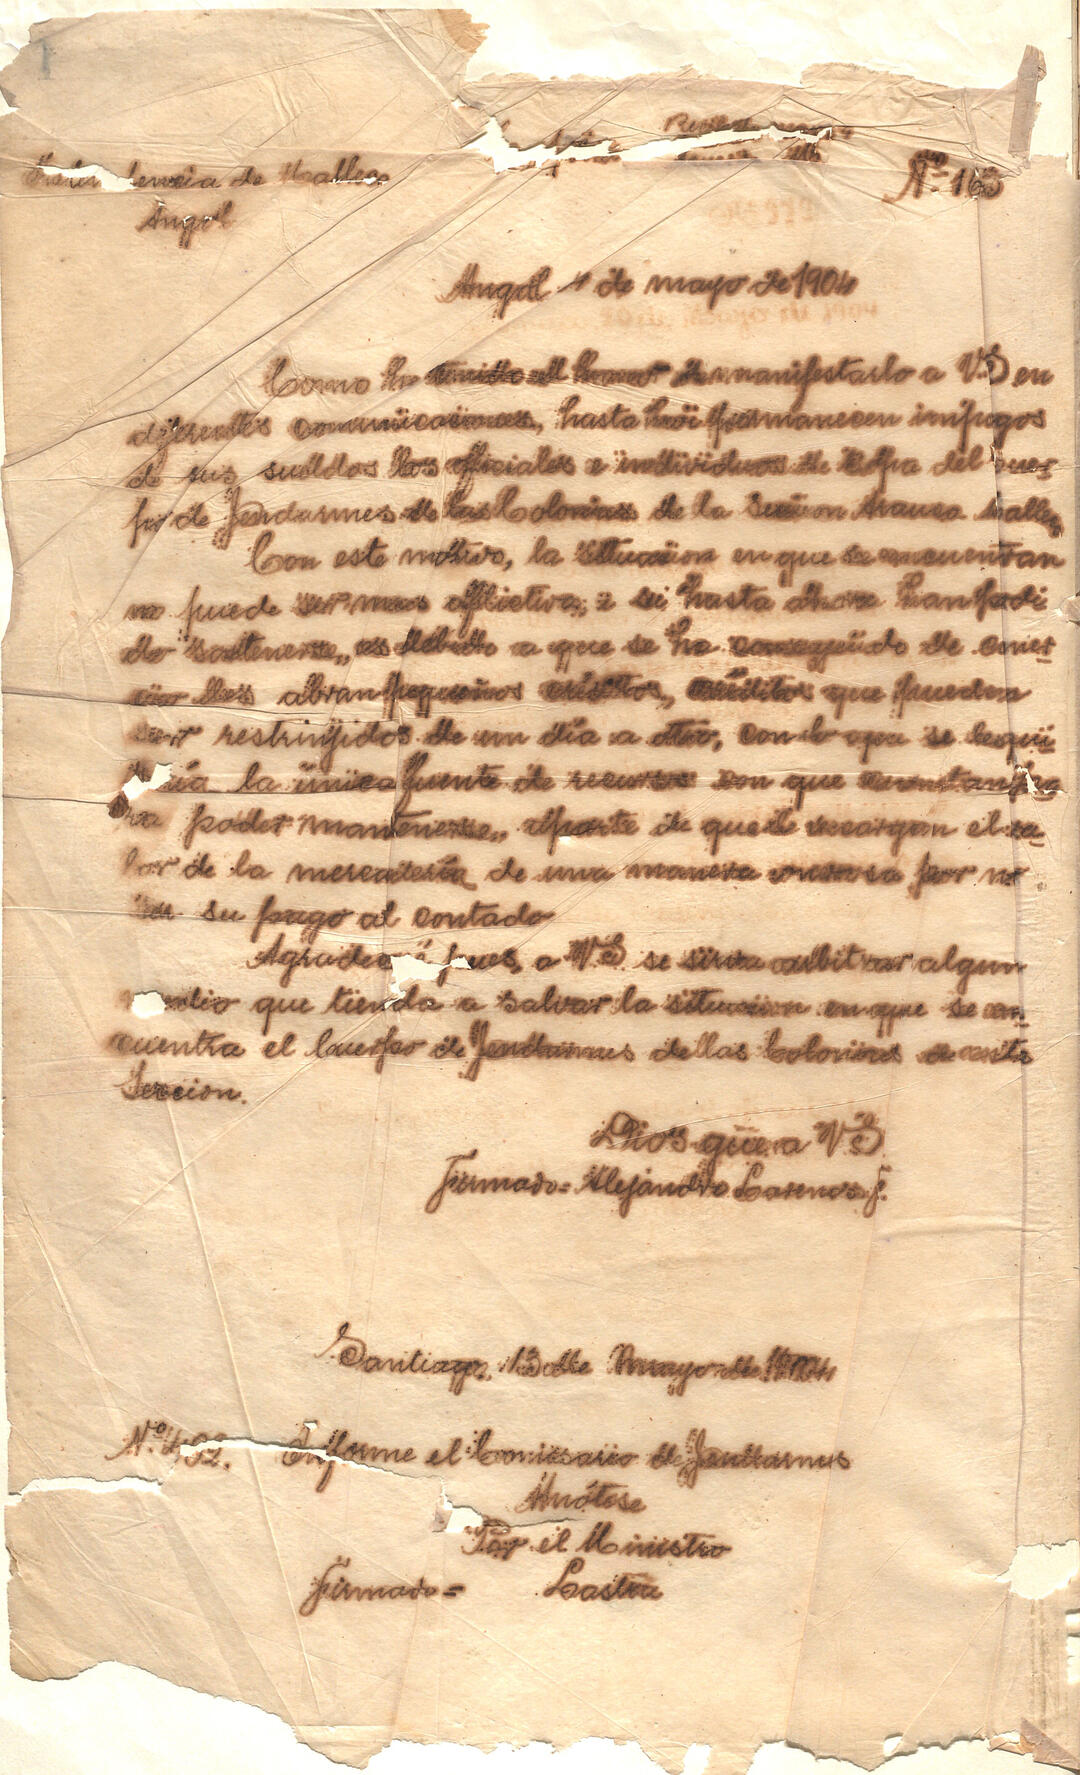 de Malleco
Nº 163
Angol
Angol 4 de mayo de 1904
Como he tenido el honor de manifestarlo a VS en
diferentes comunicaciones, hasta hoi permanecen impagos
de sus sueldos los oficiales e individuos de tropa del Cuer-
po de Jendarmes de las Colonias de la Seccion Arauco Malleco
Con este motivo, la situacion en que se encuentran
no puede ser mas aflictiva; i si hasta ahora han podi
do sostenerse, es debido a que se ha conseguido de comer-
cio les abran pequeños créditos, créditos que pueden
ser restrinjidos de un dia a otro, con lo que se
la única fuente de recursos con que cuentan pa-
ra poder mantenerse, aparte de que le recargan el va-
lor de la mercaderia de una manera onerosa por no
ser su pago al contado
Agradeceré pues, a VS. se sirva arbitrar algun
medio que tienda a salvar la situacion en que se en-
cuentra el Cuerpo de Jendarmes de las Colonias de esta
Seccion.
Dios gue. a VS.
Firmado= Alejandro Larenas F.
Santiago, 13 de mayo de 1904
Nº 492. Informe el Comisario de Jendarmes
Anótese
Por el Ministro
Firmado= Lastra